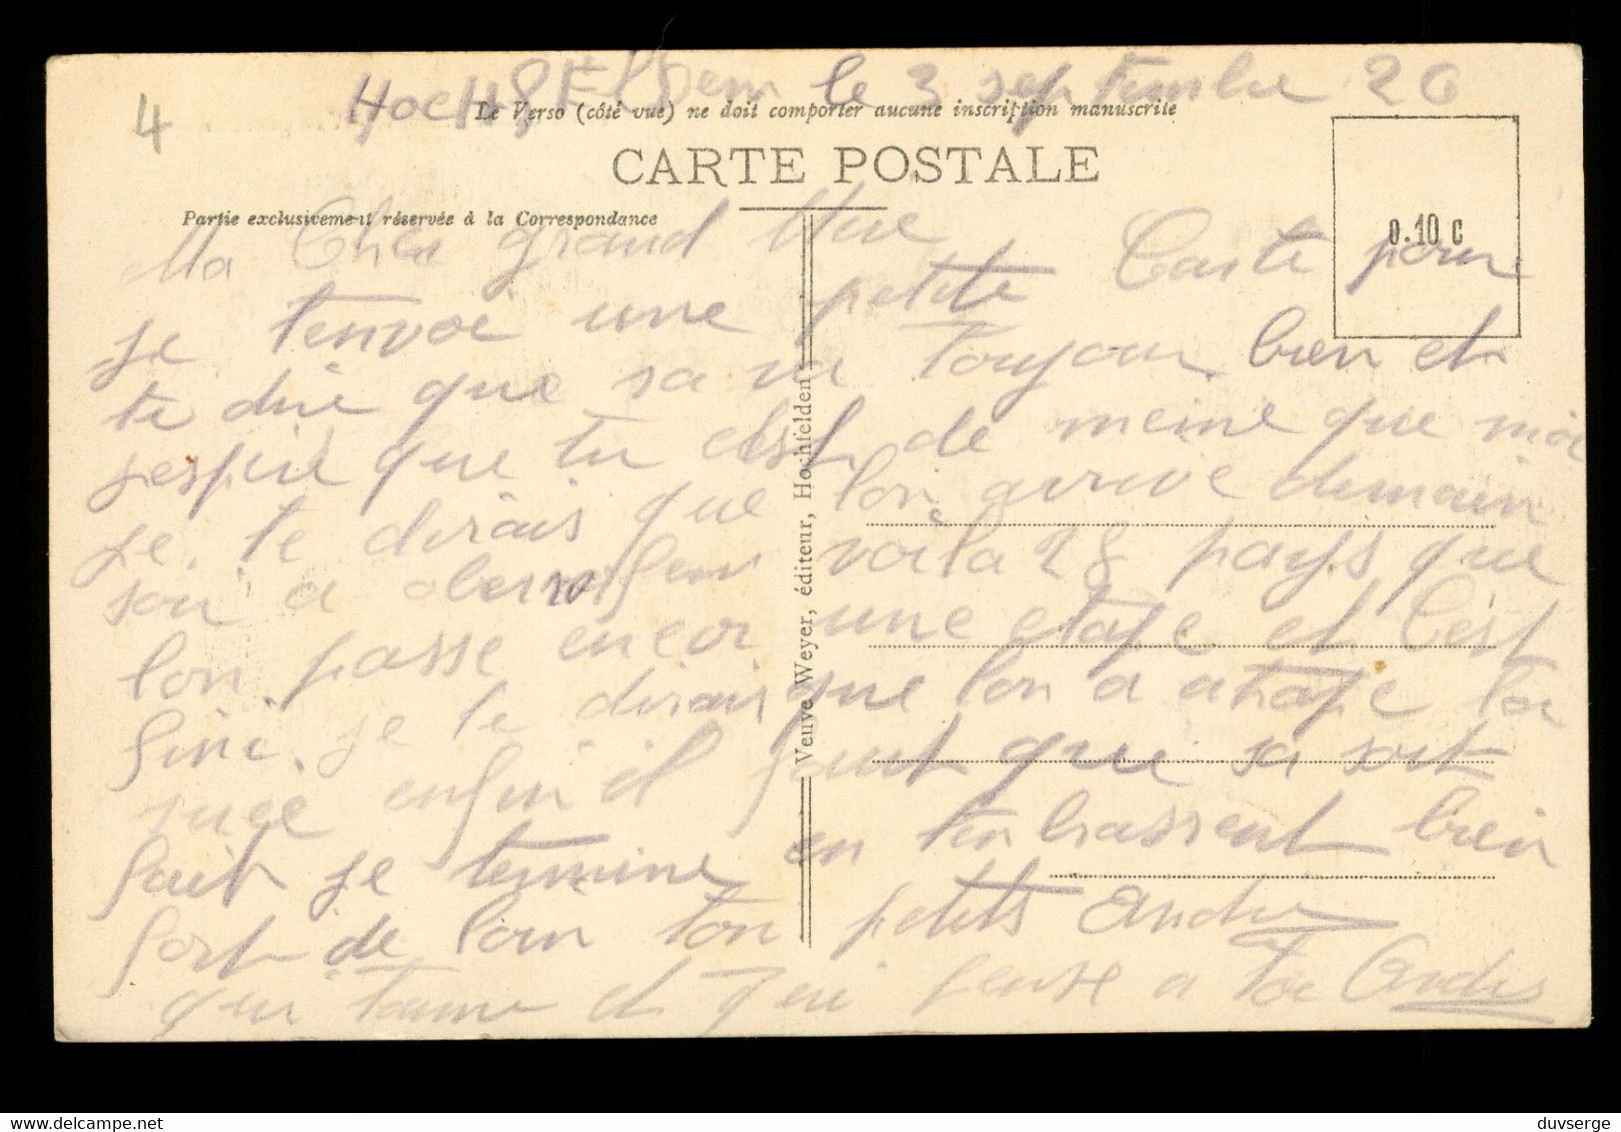 4
Hochfelden le 3 septembre 26
Le Verso (côté vue) ne doit comporter aucune inscription manuscrite
CARTE POSTALE
Partie exclusivement réservée à la Correspondance
0.10 C
Ma Cher grand Mere
je tenvoe une petite Carte pour
te dire que sa va toujour bien et
jespire que tu est de meme que moi
je te dirais que lon arrive demain
soir a voila 28 pays que
lon passe encor une etape et C'est
fini je te dirais que lon a atrape
enfin il faut que sa soit
fait je termine en tenbrassent bien
fort de loin ton petits Andre
qui taime et qui pense a toi Andre
Veuve Weyer, éditeur, Hochfelden
duvserge